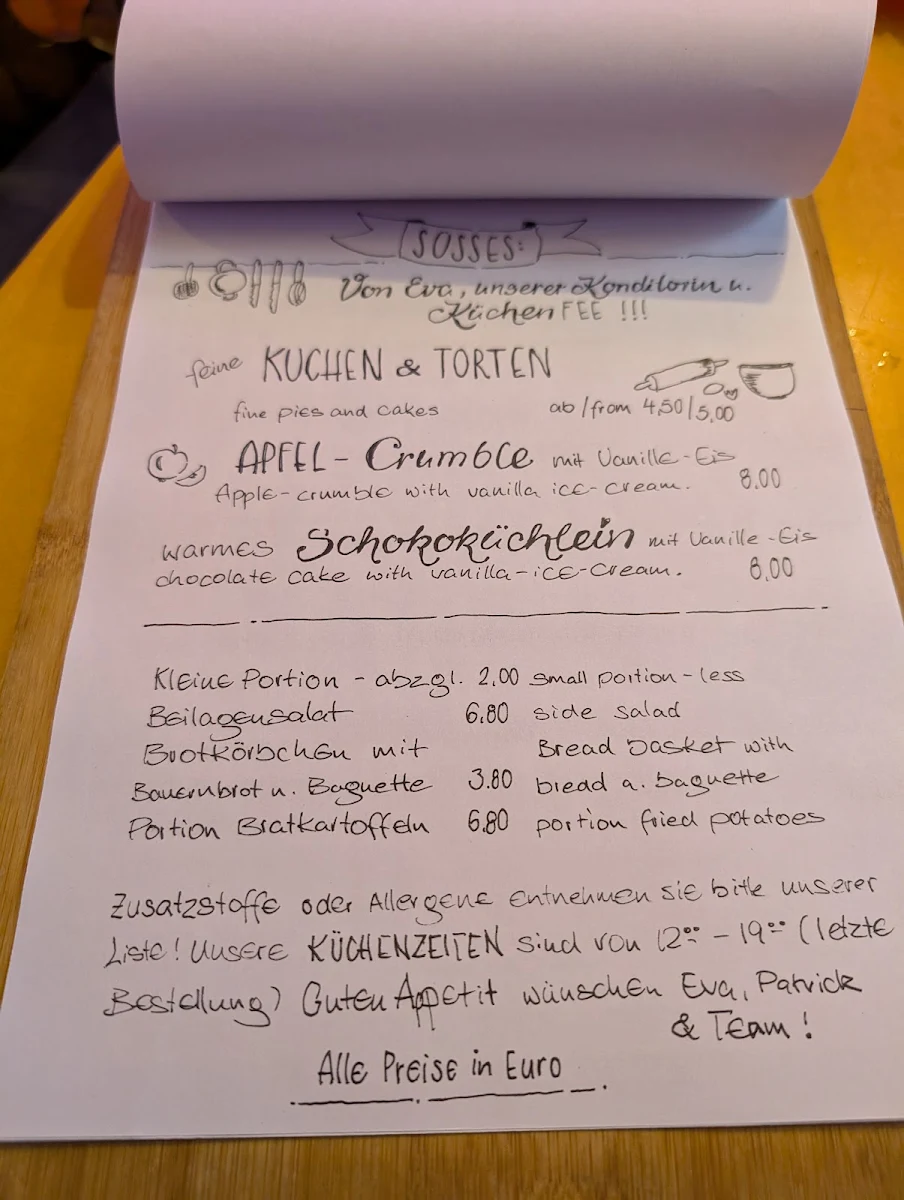 SÜSSES:
Von Eva, unserer Konditorin u.
KüchenFEE !!!
feine KUCHEN & TORTEN
fine pies and cakes ab/from 4,50/5,00
APFEL-Crumble mit Vanille-Eis
Apple-crumble with vanilla ice-cream. 8.00
warmes Schokoküchlein mit Vanille-Eis
chocolate cake with vanilla-ice-cream. 8.00
Kleine Portion - abzgl. 2.00 small portion - less
Beilagensalat 6.80 side salad
Brotkörbchen mit Bread basket with
Bauernbrot u. Baguette 3.80 bread a. baguette
Portion Bratkartoffeln 6.80 portion fried potatoes
Zusatzstoffe oder Allergene entnehmen sie bitte unserer
Liste! Unsere KÜCHENZEITEN sind von 12:00 - 19:00 (letzte
Bestellung) Guten Appetit wünschen Eva, Patrick
& Team!
Alle Preise in Euro